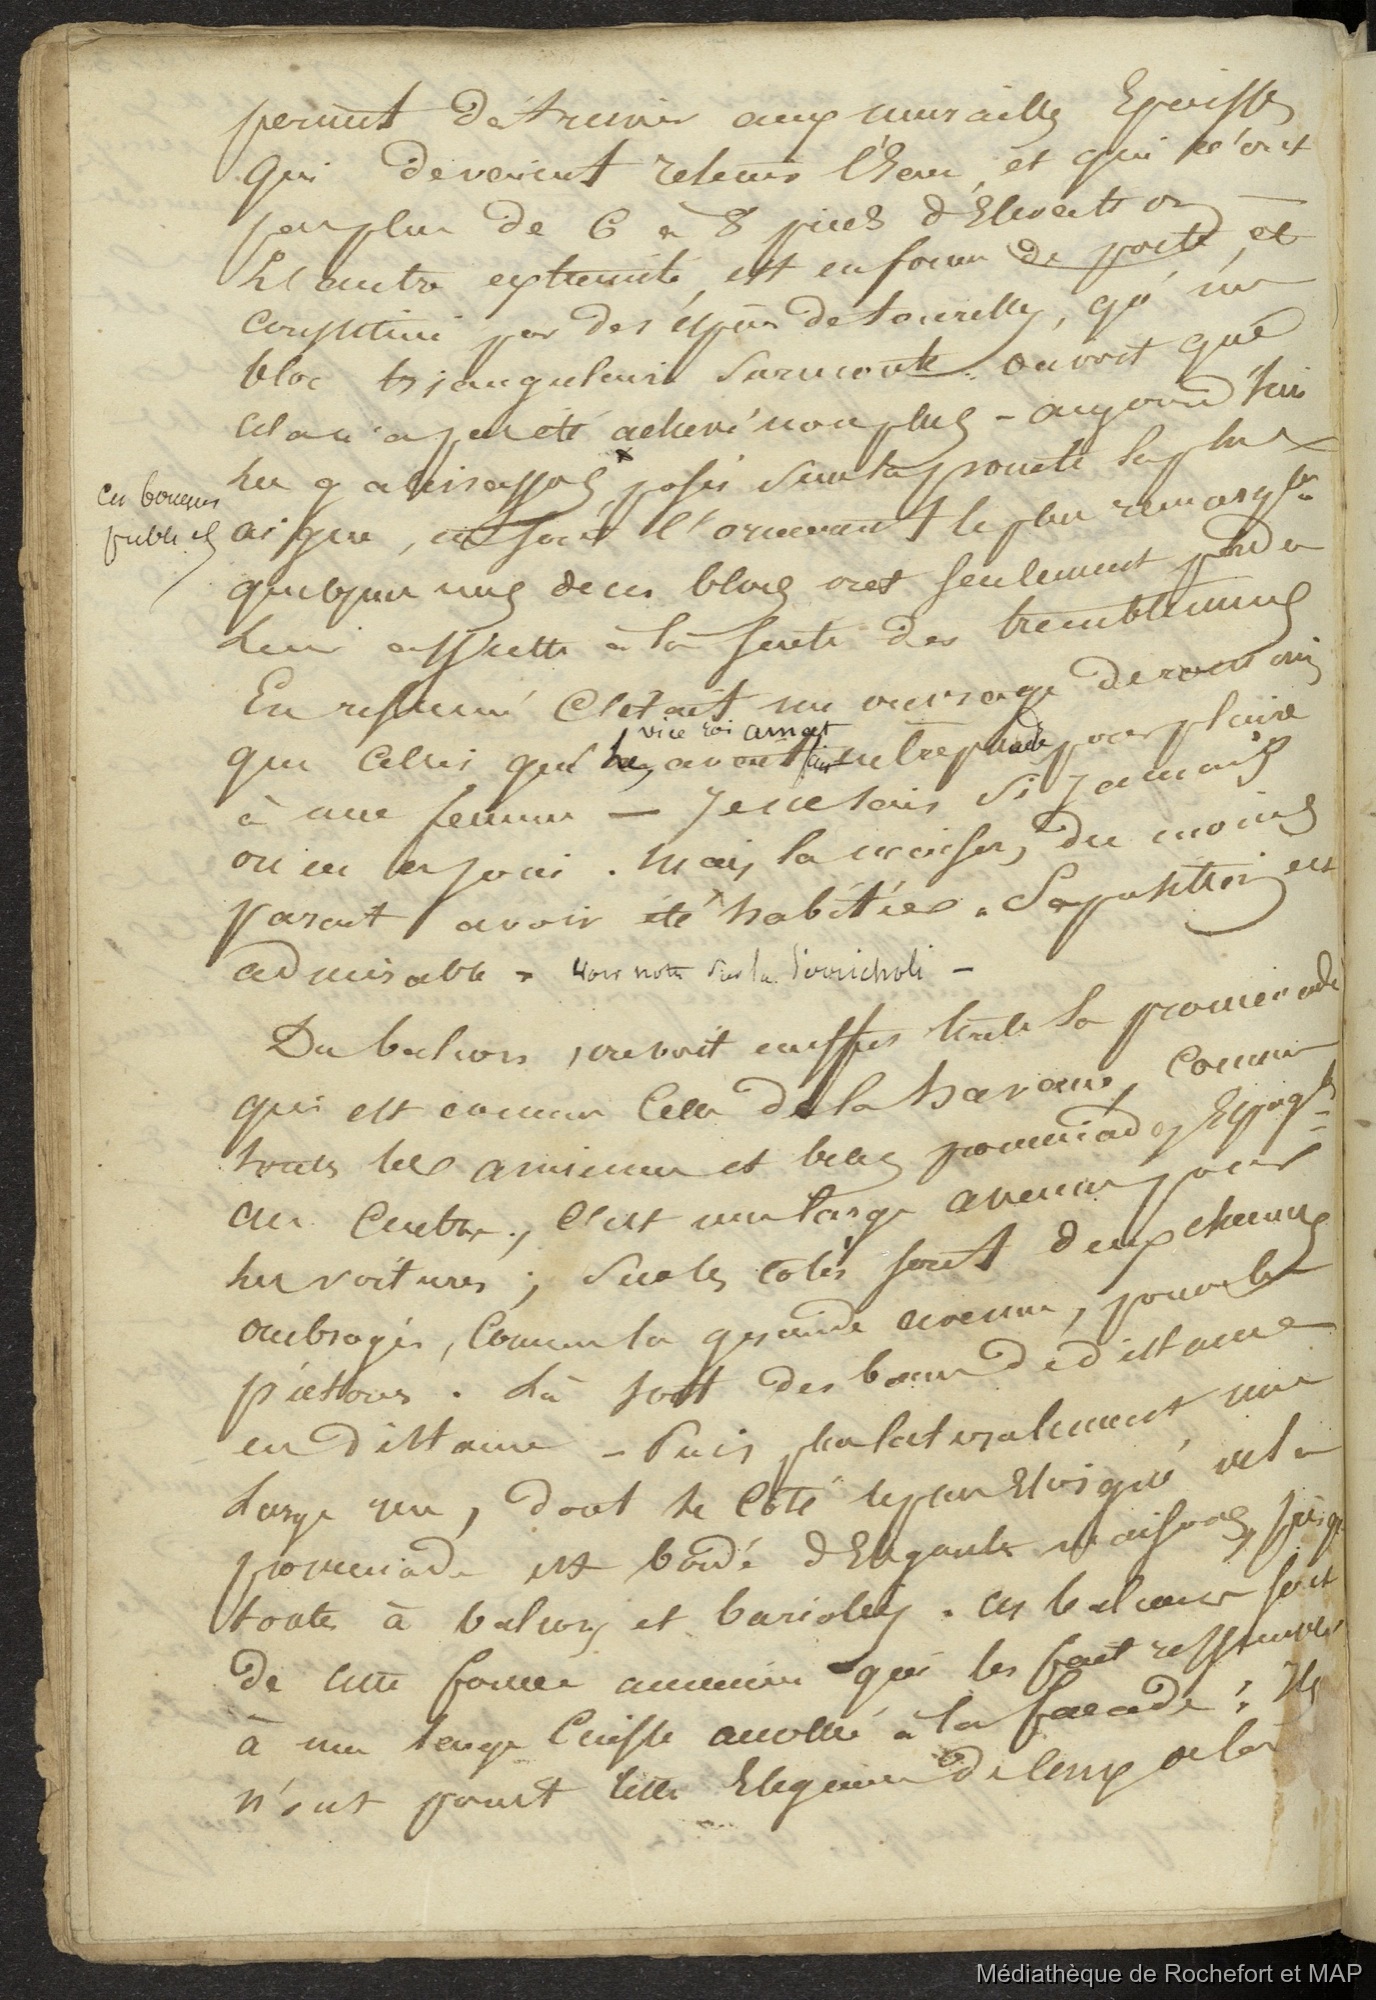 permit d'étrenir aux murailles Epaisses
qui devoient retenir l'Eau, et qui n'ont
pas plus de 6 a 8 pieds d'Elevation —
L'autre extremité est en forme de porte et
construite par des espèces de tourelles, qu'un
bloc triangulaire surmonte. on voit que
cela n'a pas eté achevé non plus - aujourd'hui
les gallinassos posés sur la pointe la plus
ces bougres
publics
aigue, en sont l'ornement le plus remarqble
quelques uns de ces blocs ont seulement perdu
leur assiette à la suite des tremblemens
En resumé C'etait un ouvrage de romain
vice roi amat
que celui que avait fait entreprendre pour plaire
à une femme — Je ne sais si jamais
on en a joui. Mais la maison, du moins
parait avoir été habitée. Sa position est
admirable - voir note sur la Périicholi -
Du balcon, on voit en effet toute la promenade
qui est comme celle de la havane, comme
toutes les anciennes et belles promenades Espagles
au centre, C'est une large avenue pour
les voitures ; sur les cotés sont deux chemins
ombragés, comme la grande avenue, pour les
piétons. Là sont des bancs de distance
en distance - Puis, paralatéralement une
large rue, dont le coté le plus Eloigné de la
promenade est bordé d'Elegantes maisons, presq
toutes à balcons et bariolées. ces balcons sont
de cette forme ancienne qui les fait ressembler
à une longue Caisse accollée à la facade ; Ils
n'ont point cette Elegance de ceux de la
Médiathèque de Rochefort et MAP